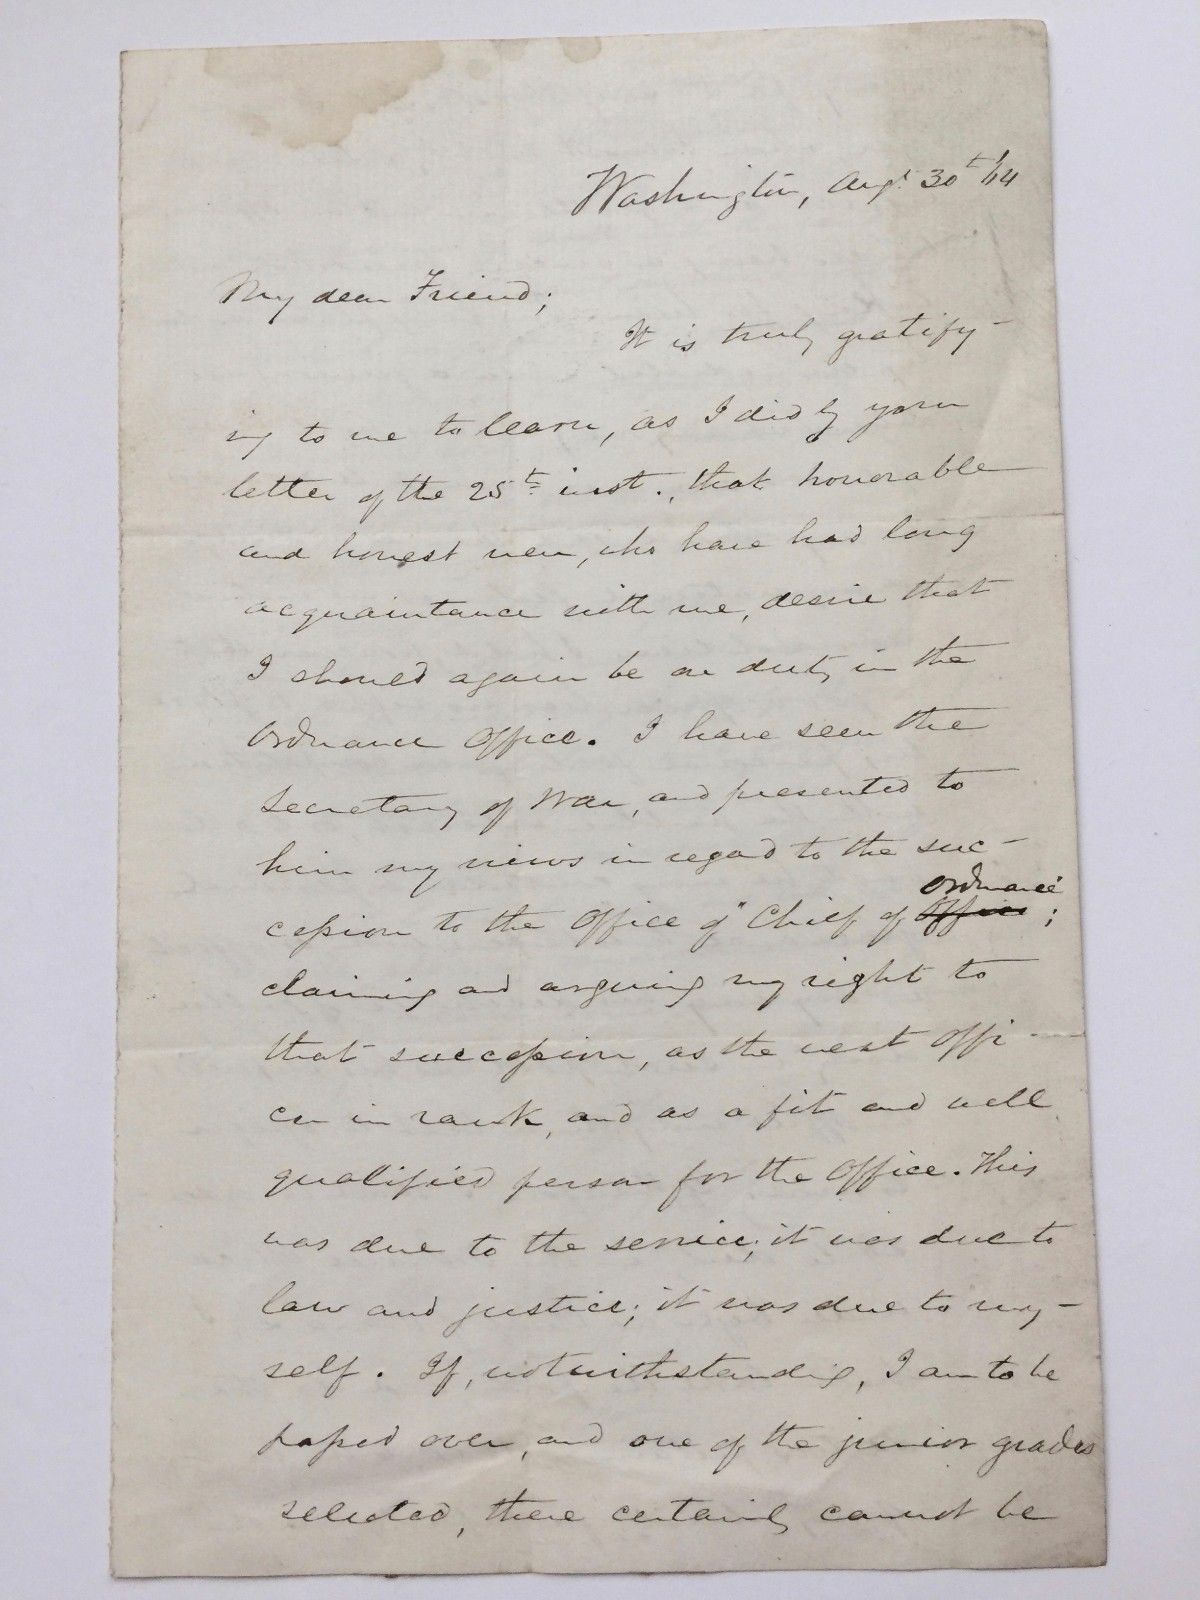 Washington, Augt. 30th /64
My dear Friend;
It is truly gratify-
ing to me to learn, as I did by your
letter of the 25th inst., that honorable
and honest men, who have had long
acquaintance with me, desire that
I should again be on duty in the
Ordnance Office. I have seen the
Secretary of War, and presented to
him my views in regard to the suc-
cession to the Office of "Chief of Office Ordnance";
claiming and arguing my right to
that succession, as the next Offi-
cer in rank, and as a fit and well
qualified person for the Office. This
was due to the service; it was due to
law and justice; it was due to my-
self. If, notwithstanding, I am to be
passed over, and one of the junior grades
selected, there certainly cannot be